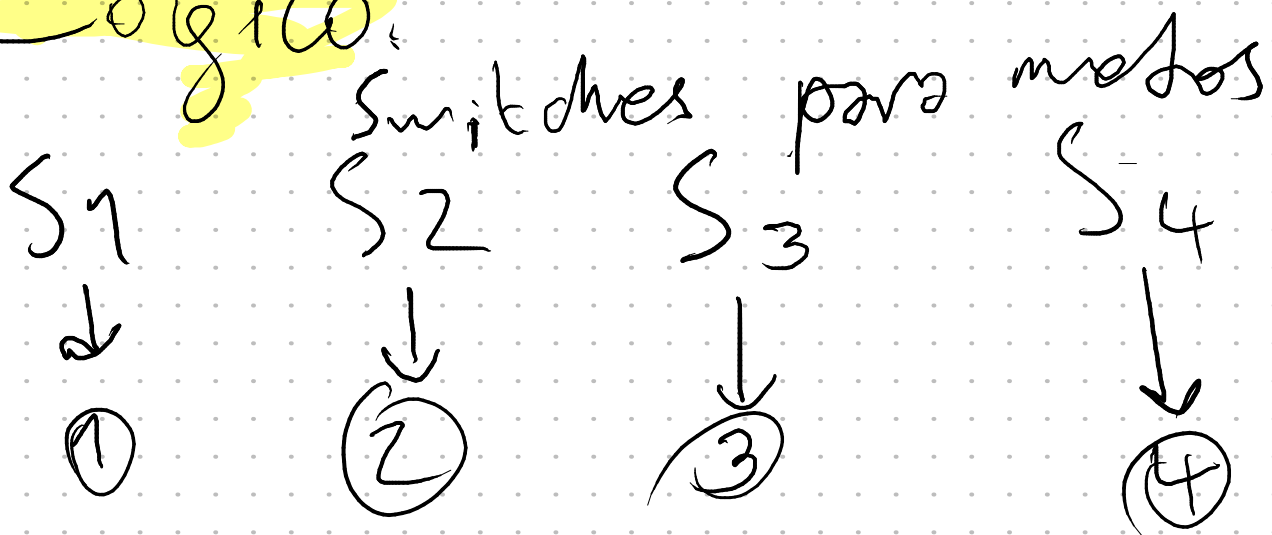 Logico.
Switches para motos
S1 S2 S3 S4
1 2 3 4